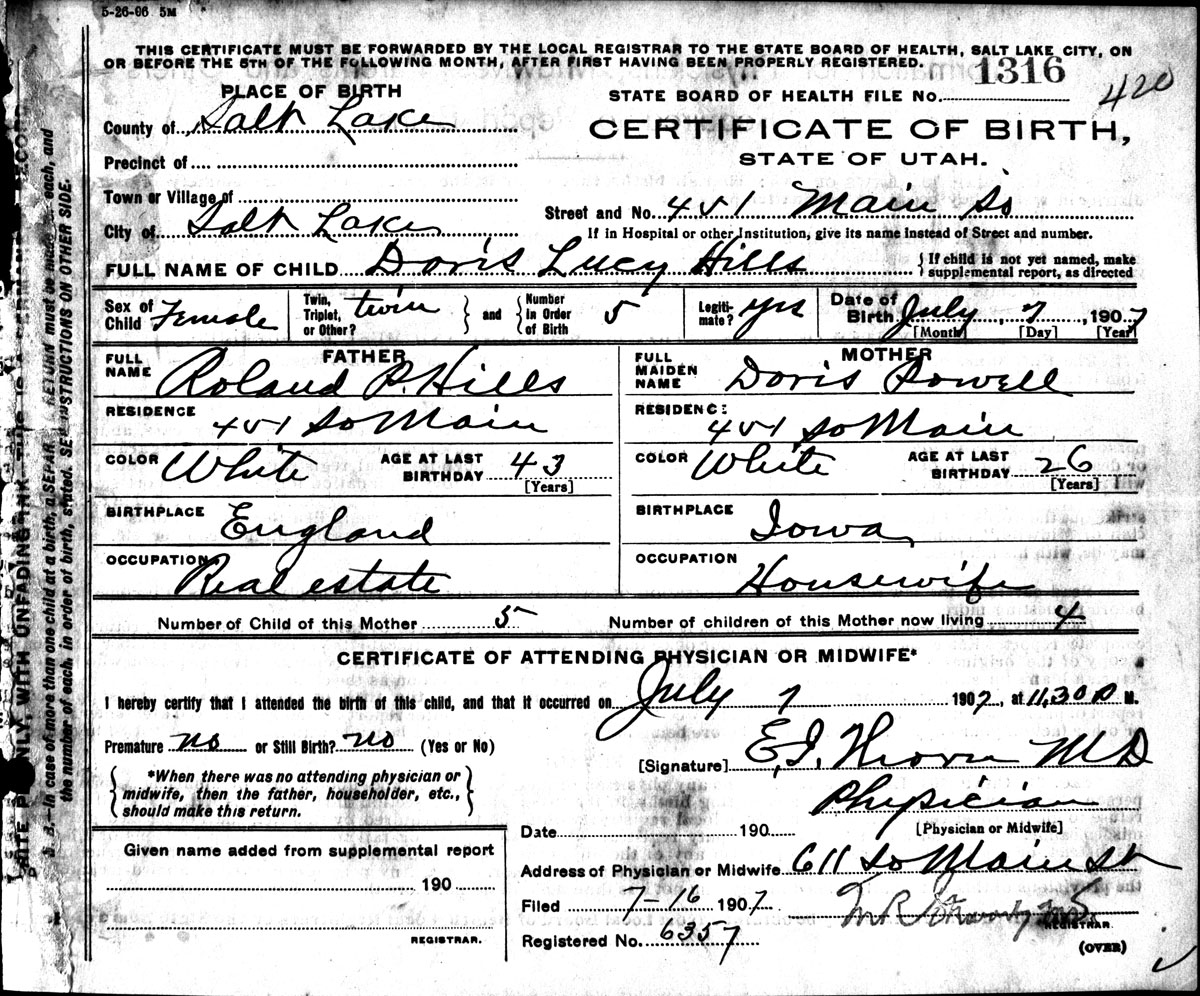 5-26-06 5M
THIS CERTIFICATE MUST BE FORWARDED BY THE LOCAL REGISTRAR TO THE STATE BOARD OF HEALTH, SALT LAKE CITY, ON
OR BEFORE THE 5TH OF THE FOLLOWING MONTH, AFTER FIRST HAVING BEEN PROPERLY REGISTERED.
1316
420
STATE BOARD OF HEALTH FILE No.
PLACE OF BIRTH
CERTIFICATE OF BIRTH,
STATE OF UTAH.
County of Salt Lake
Precinct of
Town or Village of
City of Salt Lake
Street and No. 451 Main So
If in Hospital or other Institution, give its name instead of Street and number.
FULL NAME OF CHILD Doris Lucy Hills
If child is not yet named, make supplemental report, as directed
Sex of Child Female
Twin, Triplet, or Other? twin
and
Number in Order of Birth 5
Legitimate? yes
Date of Birth July 7, 1907
[Month] [Day] [Year]
FATHER
FULL NAME Roland P. Hills
RESIDENCE 451 So Main
COLOR White AGE AT LAST BIRTHDAY 43
[Years]
BIRTHPLACE England
OCCUPATION Real estate
MOTHER
FULL MAIDEN NAME Doris Powell
RESIDENCE 451 So Main
COLOR White AGE AT LAST BIRTHDAY 26
[Years]
BIRTHPLACE Iowa
OCCUPATION Housewife
Number of Child of this Mother 5 Number of children of this Mother now living 4
CERTIFICATE OF ATTENDING PHYSICIAN OR MIDWIFE*
I hereby certify that I attended the birth of this child, and that it occurred on July 7 1907, at 11,30 P M.
Premature no or Still Birth? no (Yes or No)
*When there was no attending physician or
midwife, then the father, householder, etc.,
should make this return.
[Signature] E, I. MD
Physician
[Physician or Midwife]
Date 190
Address of Physician or Midwife 611 So Main St
Given name added from supplemental report
190
REGISTRAR.
Filed 7-16 1907
REGISTRAR
Registered No. 6357
(OVER)
N. B.—In case of more than one child at a birth, a SEPARATE RETURN must be made for each, and
the number of each, in order of birth, stated. SEE INSTRUCTIONS ON OTHER SIDE.
PLAINLY, WITH UNFADING INK—THIS IS A PERMANENT RECORD